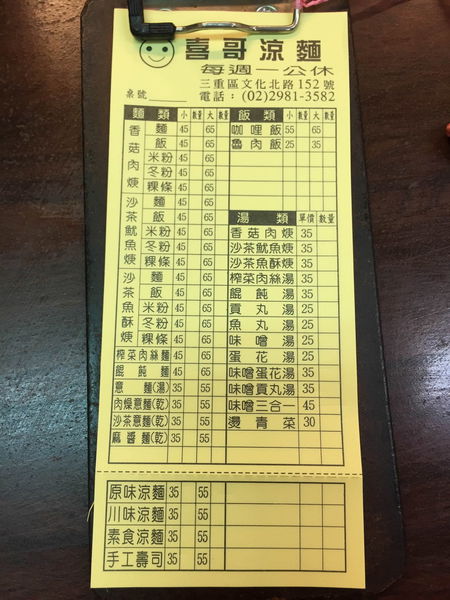 喜哥涼麵
每週一公休
三重區文化北路152號
桌號 電話：(02)2981-3582
麵類 小 數量 大 數量 飯類 小 數量 大 數量
香菇肉焿 麵 45 65 咖哩飯 55 65
飯 45 65 魯肉飯 25 35
米粉 45 65
冬粉 45 65
粿條 45 65
沙茶魷魚焿 麵 45 65
飯 45 65 湯類 單價 數量
米粉 45 65 香菇肉焿 35
冬粉 45 65 沙茶魷魚焿 35
粿條 45 65 沙茶魚酥焿 35
沙茶魚酥焿 麵 45 65 榨菜肉絲湯 35
飯 45 65 餛飩湯 35
米粉 45 65 貢丸湯 25
冬粉 45 65 魚丸湯 25
粿條 45 65 味噌湯 25
榨菜肉絲麵 45 65 蛋花湯 25
餛飩麵 45 65 味噌蛋花湯 35
意麵(湯) 35 55 味噌貢丸湯 35
肉燥意麵(乾) 35 55 味噌三合一 45
沙茶意麵(乾) 35 55 燙青菜 30
麻醬麵(乾) 35 55
原味涼麵 35 55
川味涼麵 35 55
素食涼麵 35 55
手工壽司 35 55